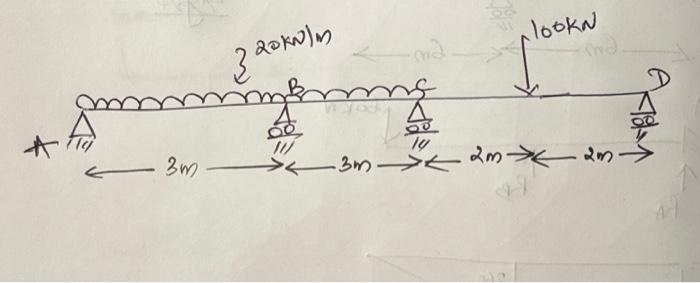 20KN/m
100KN
A
B
C
D
3m
3m
2m
2m